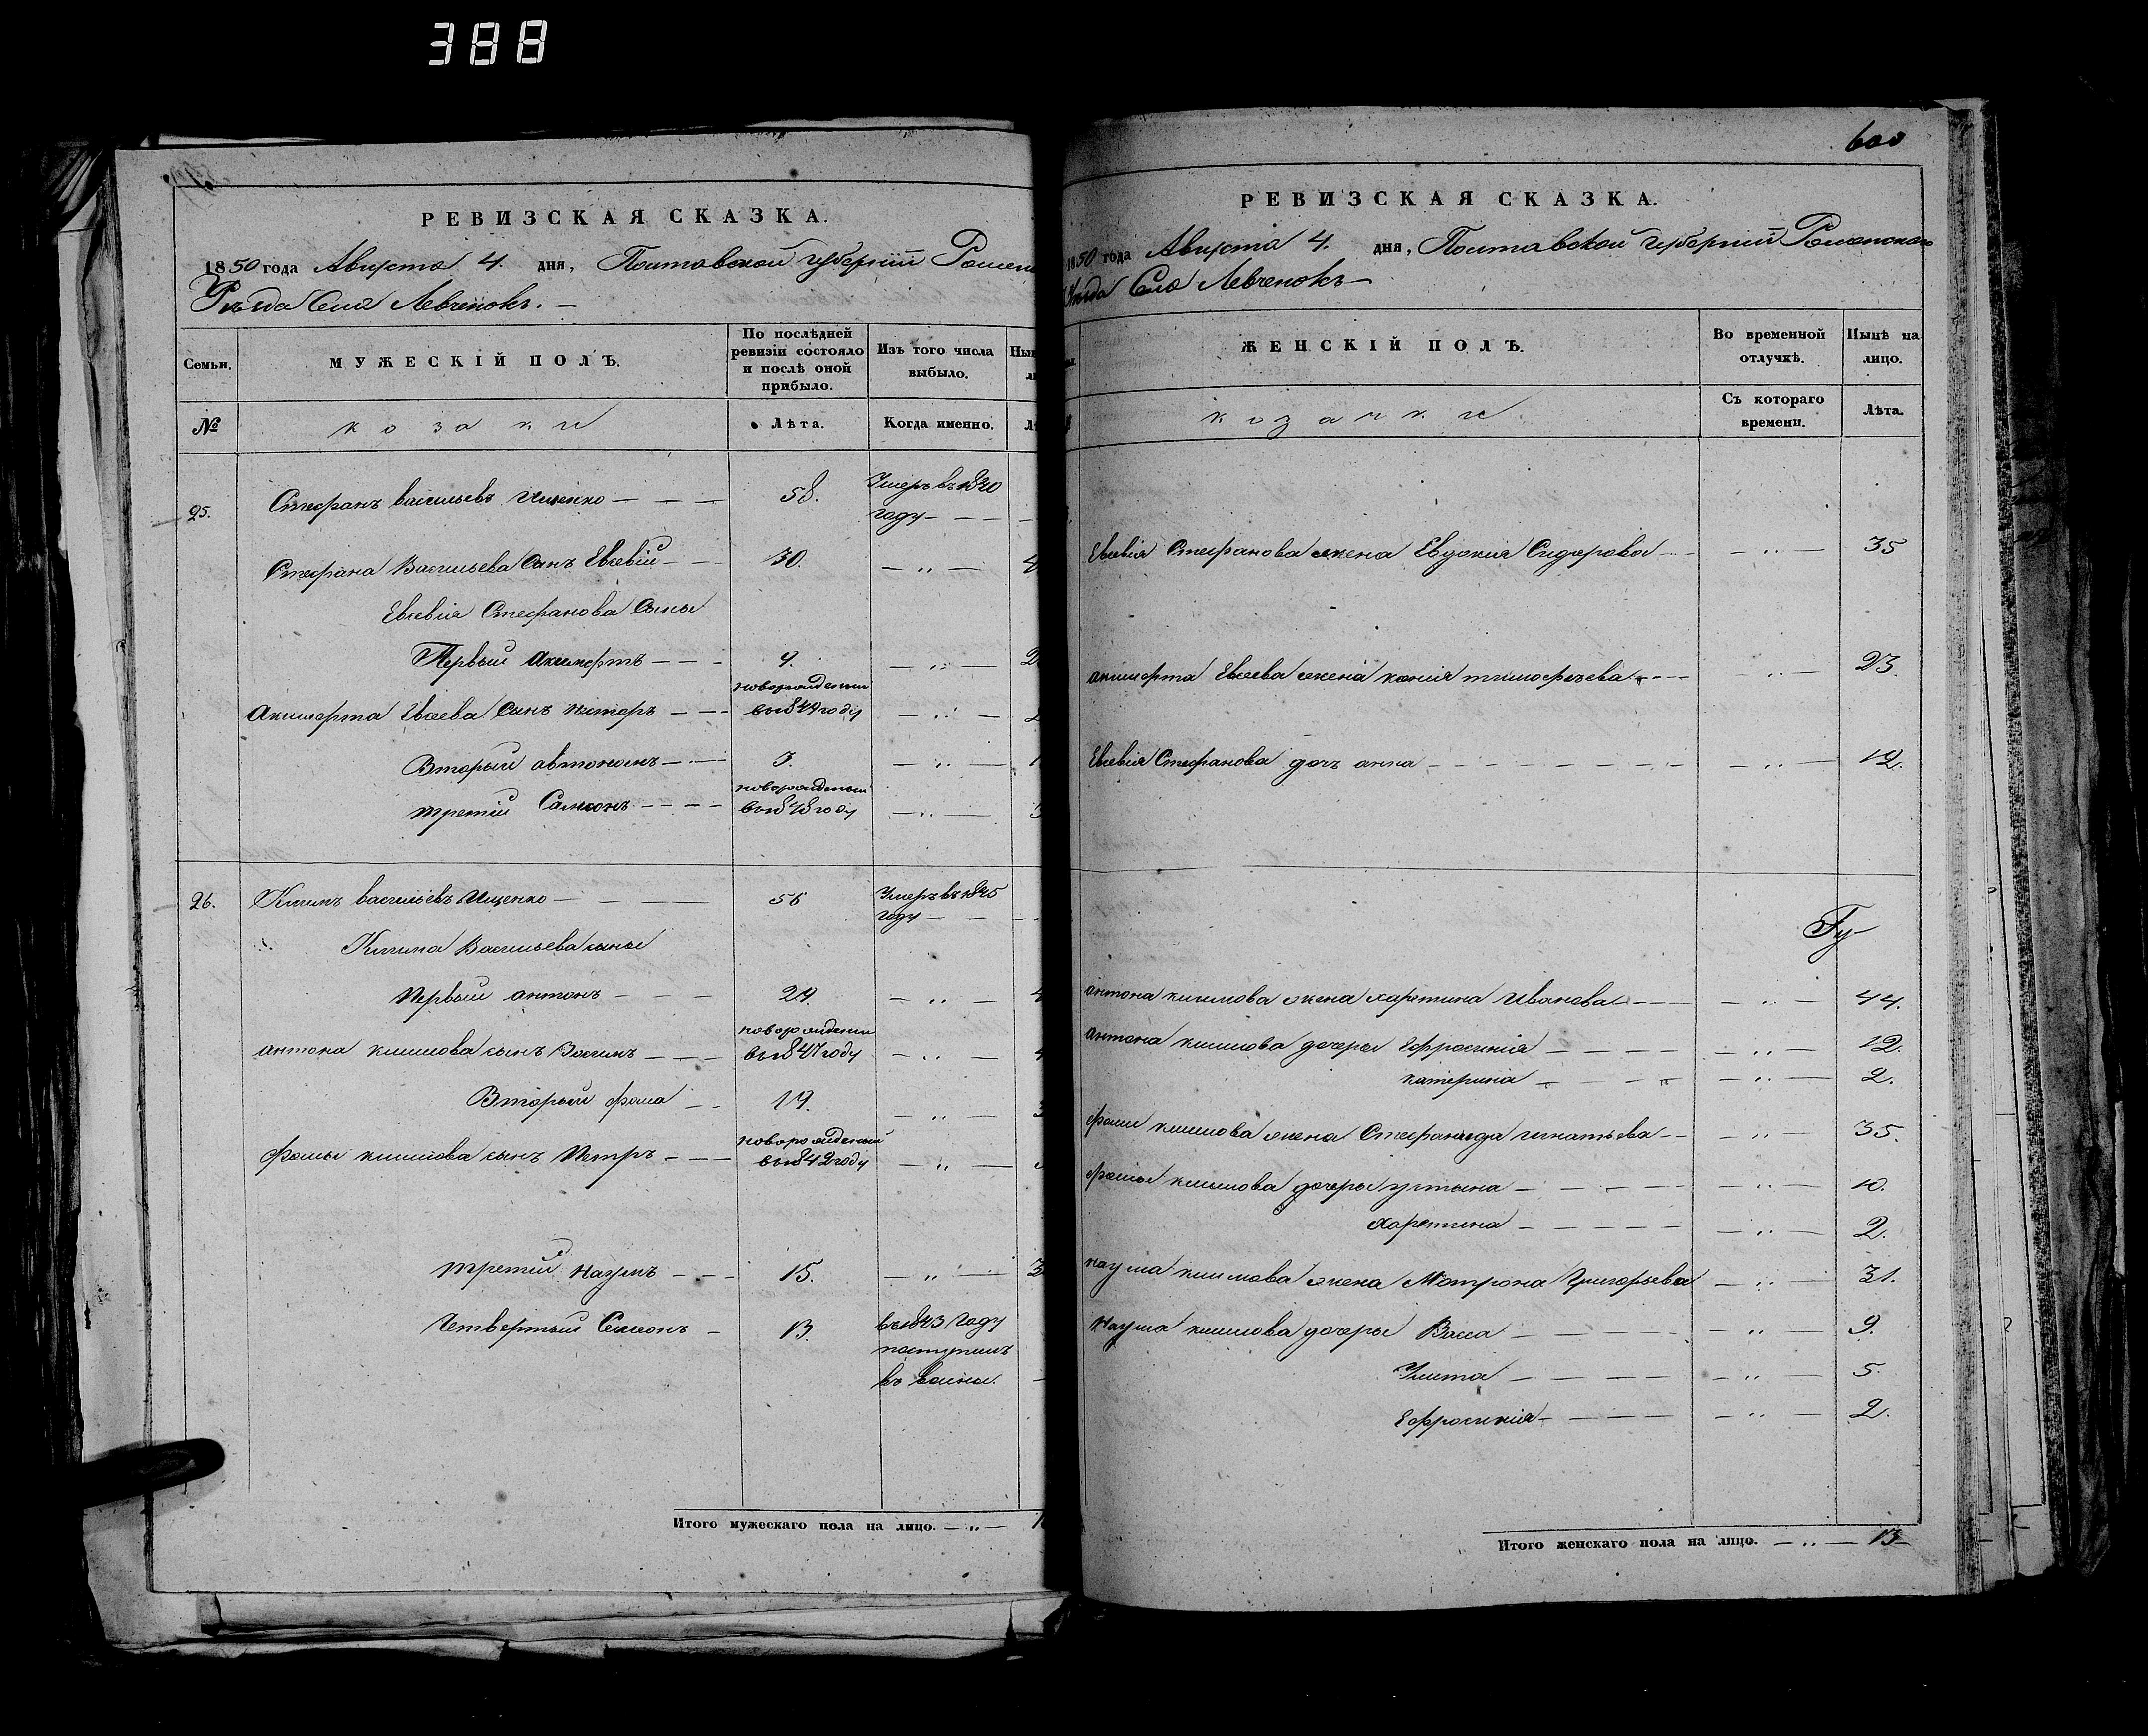 388
РЕВИЗСКАЯ СКАЗКА.
1850 года Августа 4. дня, Полтавской губерніи Ромен
Уѣзда Села Левченокъ. —
Семьи.
МУЖЕСКІЙ ПОЛЪ.
По послѣдней ревизіи состояло и послѣ оной прибыло.
Изъ того числа выбыло.
№
козаки
Лѣта.
Когда именно.
25. Стефанъ васильевъ Ищенко — — — 58. Умеръ въ 1840
году — — —
Стефана Васильева Сынъ Евсевій — — 30. — „ —
Евсевія Стефанова Сыны
Первый — — — — „ —
новорожденный
Евсева Сынъ — — — въ 1849 году — „ —
Вторый автономъ — — 3. — „ —
новорожденный
третій Самсонъ — — — — въ 1848 году — „ —
26. Климъ васильевъ Ищенко — — — 56 Умеръ въ 1845
году — —
Клима Васильева сыны
Первый антонъ — — — 24. — „ —
новорожденный
антона климова сынъ — — — въ 1847 году — „ —
Вторый фома — — 19. — „ —
новорожденный
фомы климова сынъ Петръ — — — въ 1842 году — „ —
третій наумъ — — — 15. — „ —
Четвертый Семенъ — 13. въ 1843 году
поступилъ
въ
Итого мужескаго пола на лицо. — „ —
600
РЕВИЗСКАЯ СКАЗКА.
1850 года Августа 4. дня, Полтавской губерніи Роменскаго
Уѣзда Села Левченокъ —
ЖЕНСКІЙ ПОЛЪ.
Во временной отлучкѣ.
Нынѣ на лицо.
козачки
Съ котораго времени.
Лѣта.
Евсевія Стефанова жена Евдокія Сидорова — — „ — 35
Евсева жена ксенія тимофеева — — — „ — 23.
Евсевія Стефанова дочь анна — — — — — „ — 12.
антона климова жена харитина Иванова — — — „ — 44.
антона климова дочеры Ефросинія — — — — — „ — 12.
катерина — — — — — „ — 2.
фомы климова жена Стефанида игнатьева — — — „ — 35.
фомы климова дочеры устына — — — — — „ — 10.
харитина — — — — — — „ — 2.
наума климова жена Матрона Григорьева — „ — 31.
наума климова дочеры Васса — — — — — — „ — 9.
Улита — — — — — „ — 5.
Ефросинія — — — — — „ — 2.
Итого женскаго пола на лицо. — „ — 13 —